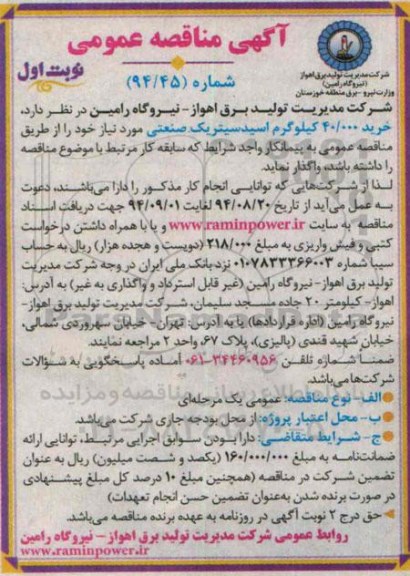 آگهی مناقصه عمومی
نوبت اول
شماره (۹۴/۴۵)
شرکت مدیریت تولید برق اهواز
(نیروگاه رامین)
وزارت نیرو -برق منطقه خوزستان
شرکت مدیریت تولید برق اهواز- نیروگاه رامین در نظر دارد،
خرید ۴۰/۰۰۰ کیلوگرم اسیدسیتریک صنعتی مورد نیاز خود را از طریق
مناقصه عمومی به پیمانکار واجد شرایط که سابقه کار مرتبط با موضوع مناقصه
را داشته باشد، واگذار نماید.
لذا از شرکت‌هایی که توانایی انجام کار مذکور را دارا می‌باشند، دعوت
به عمل می‌آید از تاریخ ۹۴/۰۸/۲۰ لغایت ۹۴/۰۹/۰۱ جهت دریافت اسناد
مناقصه به سایت www.raminpower.ir و یا با همراه داشتن درخواست
کتبی و فیش واریزی به مبلغ ۲۱۸/۰۰۰ (دویست و هجده هزار) ریال به حساب
سیبا شماره ۰۱۰۷۸۳۳۳۶۶۰۰۳ نزد بانک ملی ایران در وجه شرکت مدیریت
تولید برق اهواز- نیروگاه رامین (غیر قابل استرداد و واگذاری به غیر) به آدرس:
اهواز- کیلومتر ۲۰ جاده مسجد سلیمان، شرکت مدیریت تولید برق اهواز-
نیروگاه رامین (اداره قراردادها) یا به آدرس: تهران- خیابان سهروردی شمالی،
خیابان شهید قندی (پالیزی)، پلاک ۶۷، واحد ۲ مراجعه نمایند.
ضمناً شماره تلفن ۳۴۴۶۰۹۵۶-۰۶۱ آماده پاسخگویی به سؤالات
شرکت‌ها می‌باشد.
الف- نوع مناقصه: عمومی یک مرحله‌ای
ب- محل اعتبار پروژه: از محل بودجه جاری شرکت می‌باشد.
ج- شرایط متقاضی: دارا بودن سوابق اجرایی مرتبط، توانایی ارائه
ضمانت‌نامه به مبلغ ۱۶۰/۰۰۰/۰۰۰ (یکصد و شصت میلیون) ریال به عنوان
تضمین شرکت در مناقصه (همچنین مبلغ ۱۰ درصد کل مبلغ پیشنهادی
در صورت برنده شدن به‌عنوان تضمین حسن انجام تعهدات)
حق درج ۲ نوبت آگهی در روزنامه به عهده برنده مناقصه می‌باشد.
روابط عمومی شرکت مدیریت تولید برق اهواز - نیروگاه رامین
www.raminpower.ir